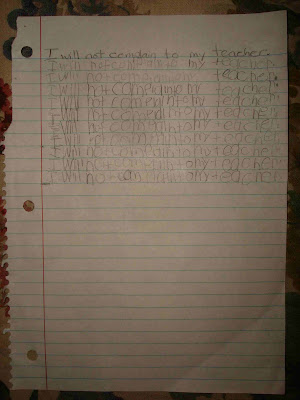 I will not complain to my teacher.
I will not complain to my teacher.
I will not complain to my teacher.
I will not complain to my teacher.
I will not complain to my teacher.
I will not complain to my teacher.
I will not complain to my teacher.
I will not complain to my teacher.
I will not complain to my teacher.
I will not complain to my teacher.